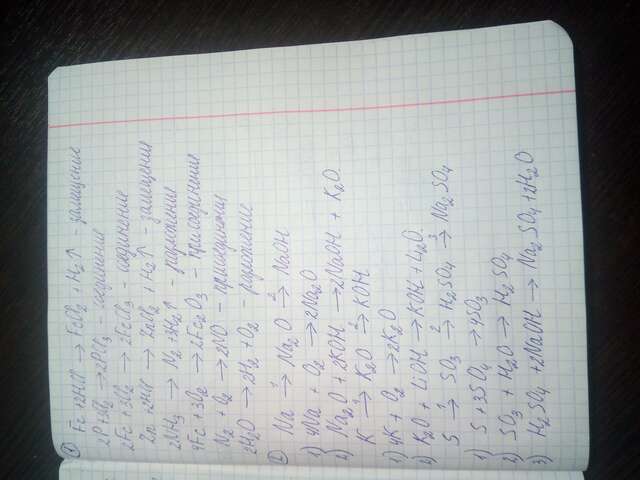 ① Fe + 2HCl → FeCl₂ + H₂↑ замещение
2P + 3Cl₂ → 2PCl₃ - соединение
2Fe + 3Cl₂ → 2FeCl₃ - соединение
Zn + 2HCl → ZnCl₂ + H₂↑ - замещение
2NH₃ → N₂ + 3H₂↑ - разложение
4Fe + 3O₂ → 2Fe₂O₃ - присоединение
N₂ + O₂ → 2NO - присоединение
2H₂O → 2H₂ + O₂ - разложение
② Na →¹ Na₂O →² NaOH
1) 4Na + O₂ → 2Na₂O
2) Na₂O + 2KOH → 2NaOH + K₂O
K →¹ K₂O →² KOH
1) 4K + O₂ → 2K₂O
2) K₂O + LiOH → KOH + Li₂O
S →¹ SO₃ →² H₂SO₄ →³ Na₂SO₄
1) S + 3SO₄ → 4SO₃
2) SO₃ + H₂O → H₂SO₄
3) H₂SO₄ + 2NaOH → Na₂SO₄ + 2H₂O